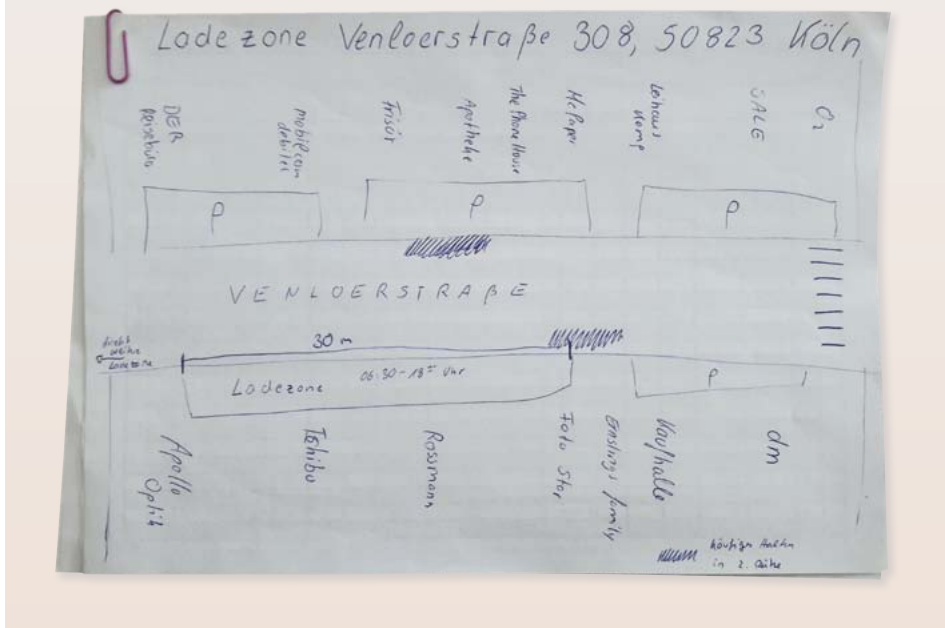 Ladezone Venloerstraße 308, 50823 Köln
DER
Reisebüro
mobilcom
debitel
Frisör
Apotheke
The Phone House
McPaper
Leihaus
Kemp
SALE
O2
P
P
P
VENLOERSTRAßE
30 m
Ladezone
Ladezone 06:30-18⁰⁰ Uhr
P
Apollo
Optik
Tchibo
Rossmann
Foto Star
Ernstings family
Kaufhalle
dm
häufiges Halten
in 2. Reihe